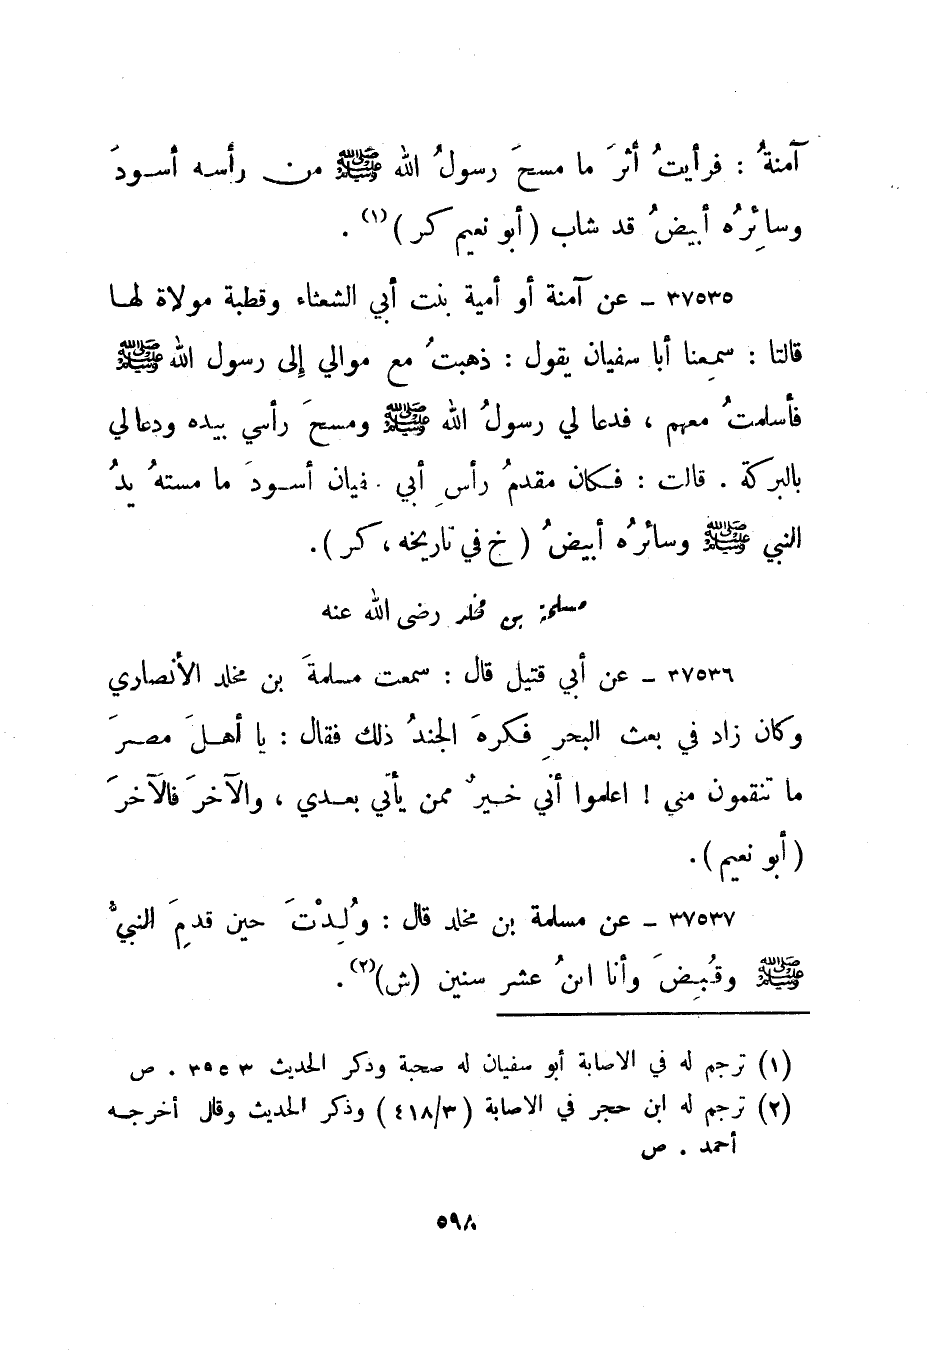 آمنةُ : فرأيتُ أثرَ ما مسحَ رسولُ الله ﷺ من رأسه أسودَ
وسائِرُه أبيضُ قد شاب ( أبو نعيم كر )(١) .
٣٧٥٣٥ ـ عن آمنة أو أمية بنت أبي الشعثاء وقطبة مولاة لها
قالتا : سمِعنا أبا سفيان يقول : ذهبتُ مع موالي إلى رسول الله ﷺ
فأسلمتُ معهم ، فدعا لي رسولُ الله ﷺ ومسحَ رأسي بيده ودعا لي
بالبركة . قالت : فكان مقدمُ رأسِ أبي فيان أسودَ ما مستهُ يدُ
النبي ﷺ وسائرُه أبيضُ ( خ في تاريخه ، كر ) .
مسلمة بن مخلد رضى الله عنه
٣٧٥٣٦ ـ عن أبي قتيل قال : سمعت مسلمةَ بن مخلد الأنصاري
وكان زاد في بعث البحرِ فكرهَ الجندُ ذلك فقال : يا أهلَ مصرَ
ما تنقمون مني ! اعلموا أني خيرٌ ممن يأتي بعدي ، والآخرَ فالآخرَ
( أبو نعيم ) .
٣٧٥٣٧ ـ عن مسلمة بن مخلد قال : وُلِدْتَ حين قدمَ النبيُّ
ﷺ وقُبِضَ وأنا ابنُ عشر سنين (ش)(٢) .
(١) ترجم له في الاصابة أبو سفيان له صحبة وذكر الحديث ٣٩٥٣ . ص
(٢) ترجم له ابن حجر في الاصابة ( ٤١٨/٣ ) وذكر الحديث وقال أخرجه
أحمد . ص
٥٩٨